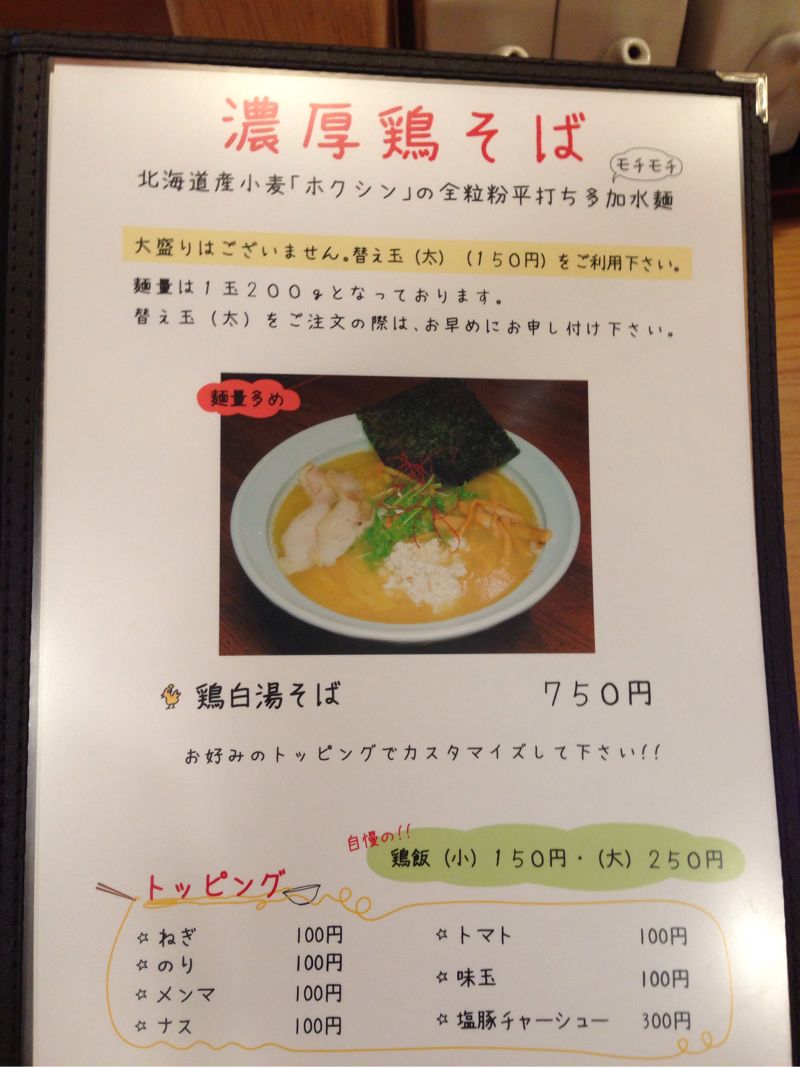 濃厚鶏そば
モチモチ
北海道産小麦「ホクシン」の全粒粉平打ち多加水麺
大盛りはございません。替え玉（太）（150円）をご利用下さい。
麺量は1玉200gとなっております。
替え玉（太）をご注文の際は、お早めにお申し付け下さい。
麺量多め
鶏白湯そば 750円
お好みのトッピングでカスタマイズして下さい!!
自慢の!!
鶏飯（小）150円・（大）250円
トッピング
☆ねぎ 100円
☆のり 100円
☆メンマ 100円
☆ナス 100円
☆トマト 100円
☆味玉 100円
☆塩豚チャーシュー 300円